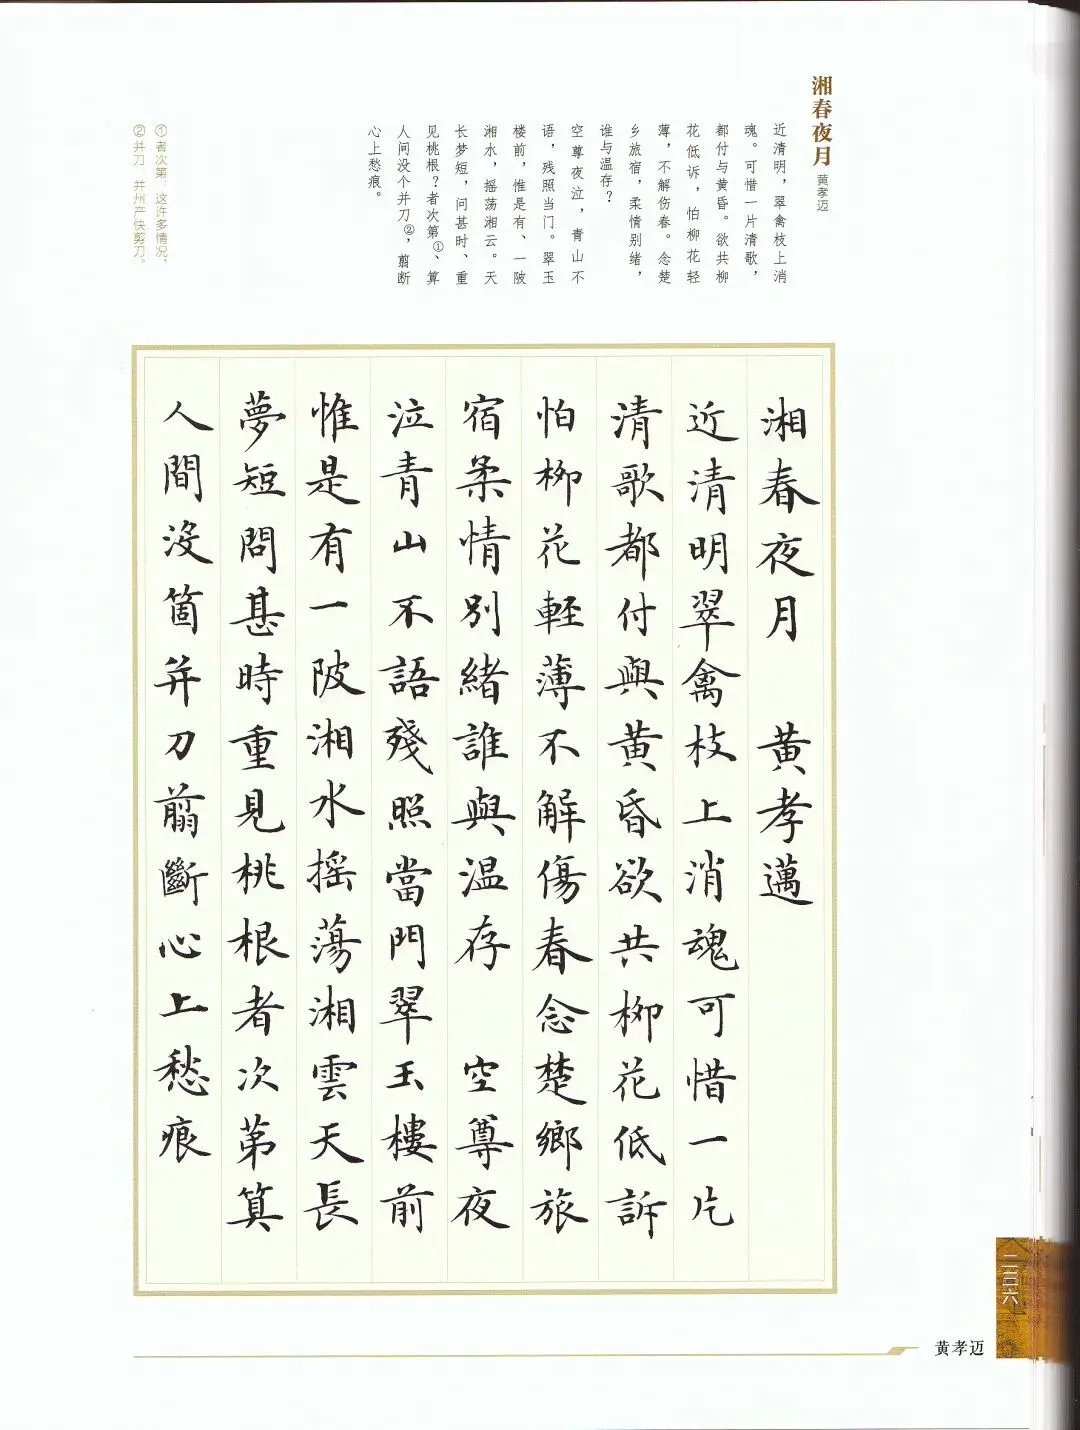 湘春夜月 黄孝迈
近清明，翠禽枝上消
魂。可惜一片清歌，
都付与黄昏。欲共柳
花低诉，怕柳花轻
薄，不解伤春。念楚
乡旅宿，柔情别绪，
谁与温存？
空尊夜泣，青山不
语，残照当门。翠玉
楼前，惟是有、一陂
湘水，摇荡湘云。天
长梦短，问甚时、重
见桃根？者次第①、算
人间没个并刀②，翦断
心上愁痕。
①者次第 这许多情况。
②并刀 并州产快剪刀。
湘春夜月 黄孝邁
近清明翠禽枝上消魂可惜一片
清歌都付與黄昏欲共柳花低訴
怕柳花輕薄不解傷春念楚鄉旅
宿柔情別緒誰與温存 空尊夜
泣青山不語殘照當門翠玉樓前
惟是有一陂湘水摇蕩湘雲天長
夢短問甚時重見桃根者次第算
人間没箇并刀翦斷心上愁痕
二三六
黄孝迈